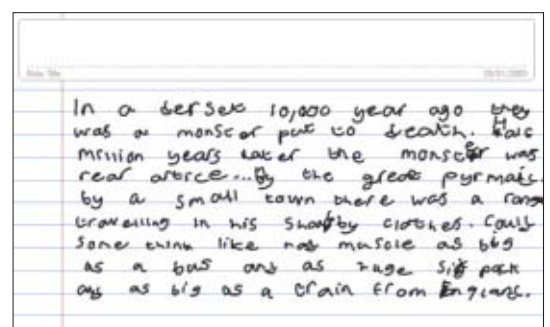 In a dersek 10,000 year ago they
was a monster put to death. Half
million years later the monster was
rear artice... By the great pyrmais.
by a small town there was a
travelling in his shabby clothes. Could
some think like has muscle as big
as a bus and as huge six pack
and as big as a train from England.